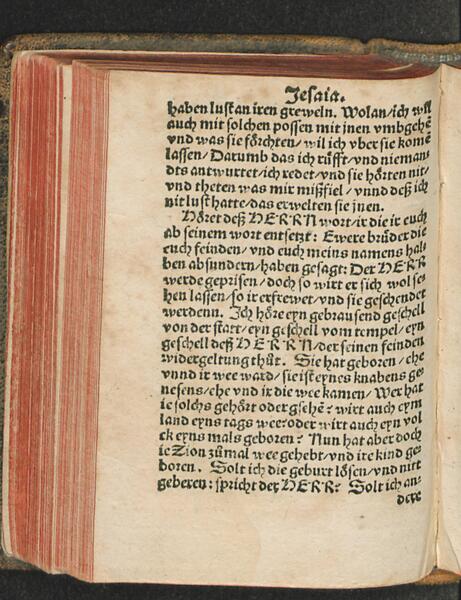 Jesaia.
haben lust an iren greweln. Wolan/ich will
auch mit solchen possen mit jnen vmbgehē
vnd was sie förchten/wil ich vber sie komē
lassen/Darumb das ich rüfft/vnd nieman
dts antwurtet/ich redet/vnd sie hörten nit/
vnd theten was mir mißfiel/vnnd deß ich
nit lust hatte/das erwelten sie jnen.
Höret deß HERRN wort/ir die ir euch
ab seinem wort entsetzt: Ewere brüder die
euch feinden/vnd euch meins namens hal-
ben absundern/haben gesagt: Der HERR
werde geprisen/doch so wirt er sich wol se-
hen lassen/so ir erfrewet/vnd sie geschendet
werdenn. Ich höre eyn gebrausend geschell
von der statt/eyn geschell vom tempel/eyn
geschell deß HERRN/der seinen feinden
widergeltung thůt. Sie hat geboren/ehe
vnnd ir wee ward/sie ist eynes knabens ge-
nesens/ehe vnd ir die wee kamen/Wer hat
ie solchs gehört oder gsehē? wirt auch eym
land eyns tags wee? oder wirt auch eyn vol
ck eyns mals geboren? Nun hat aber doch
ie Zion zůmal wee gehebt/vnd ire kind ge-
boren. Solt ich die geburt lösen/vnd nitt
geberen: spricht der HERR? Solt ich an-
dere